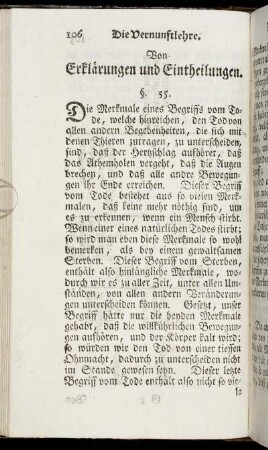 106 Die Vernunftlehre.
Von
Erklärungen und Eintheilungen.
§. 55.
Die Merkmale eines Begriffs vom To-
de, welche hinreichen, den Tod von
allen andern Begebenheiten, die sich mit
denen Thieren zutragen, zu unterscheiden,
sind, daß der Hertzschlag aufhöret, daß
das Athemholen vergeht, daß die Augen
brechen, und daß alle andre Bewegun-
gen ihr Ende erreichen. Dieser Begriff
vom Tode bestehet aus so vielen Merk-
malen, daß keine mehr nöthig sind, um
es zu erkennen, wenn ein Mensch stirbt.
Wenn einer eines natürlichen Todes stirbt;
so wird man eben diese Merkmale so wohl
bemerken, als bey einem gewaltsamen
Sterben. Dieser Begriff vom Sterben,
enthält also hinlängliche Merkmale, wo-
durch wir es zu aller Zeit, unter allen Um-
ständen, von allen andern Veränderun-
gen unterscheiden können. Gesetzt, unser
Begriff hätte nur die beyden Merkmale
gehabt, daß die willkührlichen Bewegun-
gen aufhören, und der Körper kalt wird;
so würden wir den Tod von einer tieffen
Ohnmacht, dadurch zu unterscheiden nicht
im Stande gewesen seyn. Dieser letzte
Begriff vom Tode enthält also nicht so vie-
le